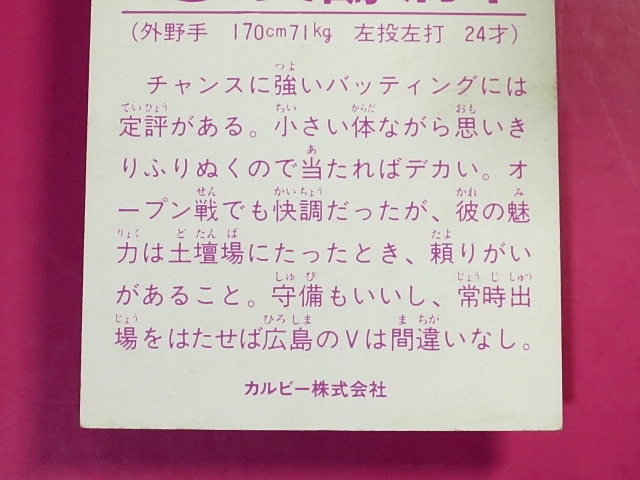 (外野手 170cm71kg 左投左打 24才)
チャンスに強いバッティングには
定評がある。小さい体ながら思いき
りふりぬくので当たればデカい。オ
ープン戦でも快調だったが、彼の魅
力は土壇場にたったとき、頼りがい
があること。守備もいいし、常時出
場をはたせば広島のVは間違いなし。
カルビー株式会社